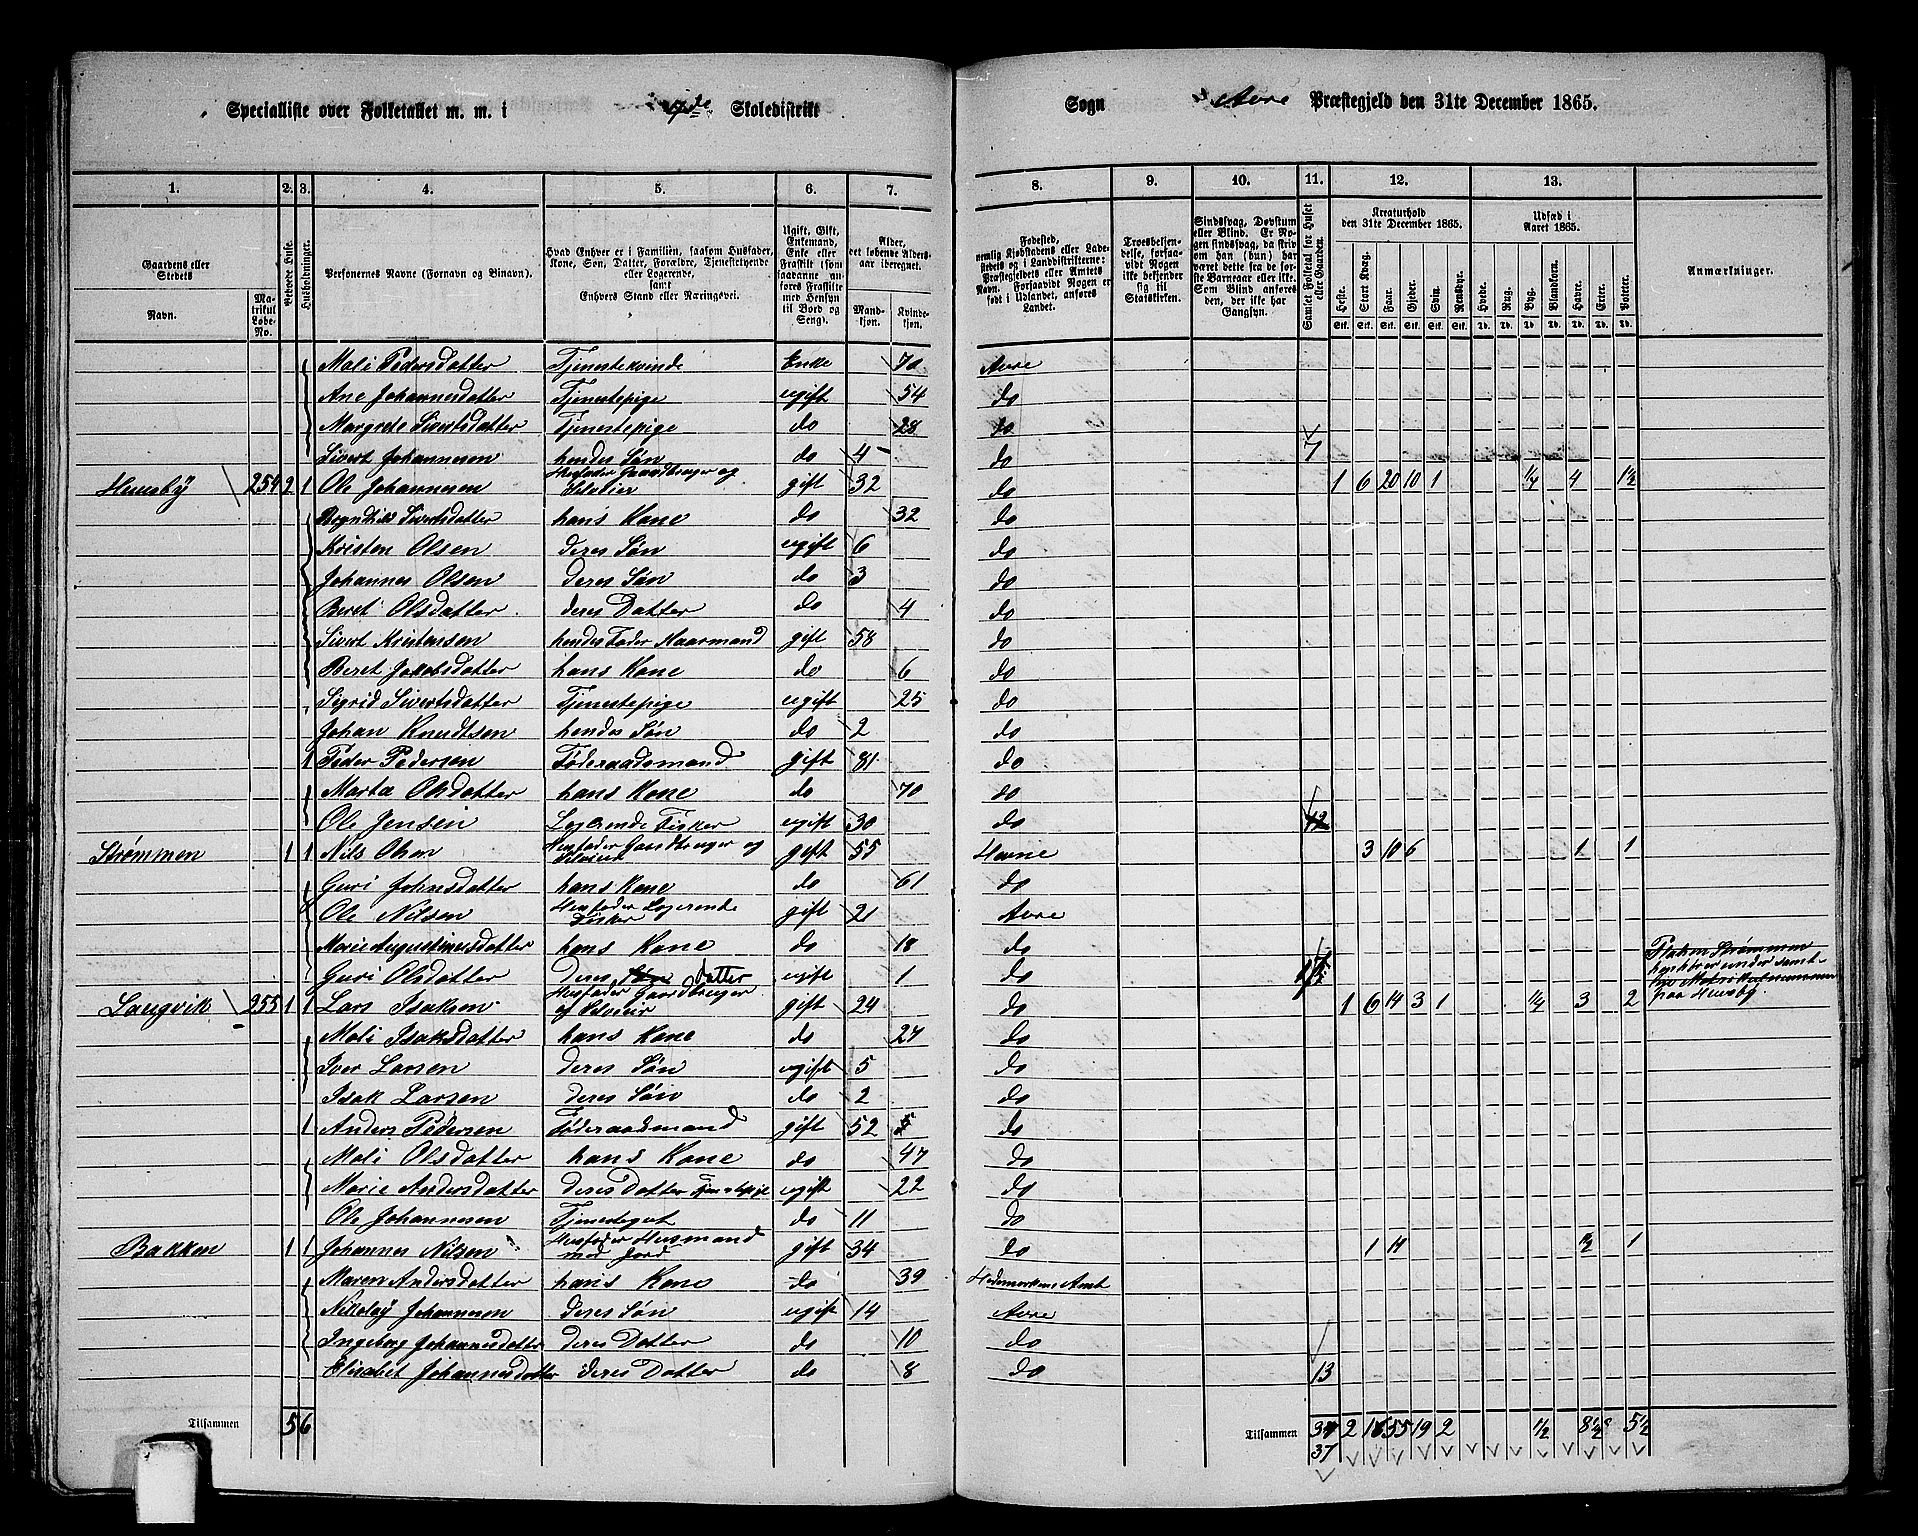 Specialliste over Folketallet m. m. i 7de Skoledistrikt
Sogn Aure Præstegjeld den 31te December 1865.
1. 2. 3. 4. 5. 6. 7. 8. 9. 10. 11. 12. 13.
Gaardens eller Stedets Navn.
Matrikul Løbe-No.
Beboede Huse.
Husholdninger.
Personernes Navne (Fornavn og Binavn).
Hvad Enhver er i Familien, saasom Husfader, Kone, Søn, Datter, Forældre, Tjenestetyende eller Logerende, samt Enhvers Stand eller Næringsvei.
Ugift, Gift, Enkemand, Enke eller Fraskilt
Alder, det løbende Alders-aar iberegnet.
Mandkjøn. Kvindekjøn.
Fødested,
Troesbekjendelse, forsaavidt Nogen ikke bekjender sig til Statskirken.
Sindssvag, Døvstum eller Blind.
Samlet Folketal for Huset eller Gaarden.
Kreaturhold den 31te December 1865.
Heste. Stort Kvæg. Faar. Gjeder. Svin. Rensdyr.
Udsæd i Aaret 1865.
Hvede. Rug. Byg. Blandkorn. Havre. Erter. Poteter.
Anmærkninger.
Mali Pedersdatter Tjenestekvinde Enke 70 Aure
Ane Johannesdatter Tjenestepige ugift 54 do
Margrete Sivertsdatter Tjenestepige do 28 do
Sivert Johannesen hendes Søn do 4 do 7
Husby 254 2 1 Ole Johannesen Husfader Gaardbruger og Selveier gift 32 do 1 6 20 10 1 1/4 4 1 1/2
Sivertsdatter hans Kone do 32 do
Kristen Olsen deres Søn ugift 6 do
Johannes Olsen deres Søn do 3 do
Beret Olsdatter deres Datter do 4 do
Sivert Kristensen hendes Fader gift 58 do
Beret Jakobsdatter hans Kone do 6 do
Sigrid Sivertsdatter Tjenestepige ugift 25 do
Johan Knudtsen hendes Søn do 2 do
1 Peder Pedersen Føderaadsmand gift 81 do
Marta Olsdatter hans Kone do 70 do
Ole Jensen Logerende Fisker ugift 30 do 12
Strømmen 1 1 Nils Olsen Husfader Gaardbruger og Selveier gift 55 Hevne 3 10 6 1 1
Guri Johnsdatter hans Kone do 61 do
Ole Nilsen Husfader Logerende Fisker gift 21 Aure
Marie Augustinusdatter hans Kone do 18 do
Guri Olsdatter deres Søn datter ugift 1 do
Pladsen Strømmen
henhører under samt-
paa Husby.
Langvik 255 1 1 Lars Isaksen Husfader Gaardbruger og Selveier gift 24 do 1 6 14 3 1 1 1/4 3 2
Mali Isaksdatter hans Kone do 27 do
Iver Larsen deres Søn ugift 5 do
Isak Larsen deres Søn do 2 do
1 Anders Pedersen Føderaadsmand gift 52 do
Mali Olsdatter hans Kone do 47 do
Marie Andersdatter deres Datter ugift 22 do
Ole Johannesen Tjenestegut do 11 do
Bakken 1 1 Johannes Nilsen Husfader Husmand med Jord gift 34 do 1 14 1/2 1
Maren Andersdatter hans Kone do 39 Hedemarkens Amt
Nikolay Johannesen deres Søn ugift 14 Aure
Ingeborg Johannesdatter deres Datter do 10 do
Elisabet Johannesdatter deres Datter do 8 do 13
Tilsammen 5 6
Tilsammen 2 16 55 19 2 1/2 8 1/2 5 1/2
37